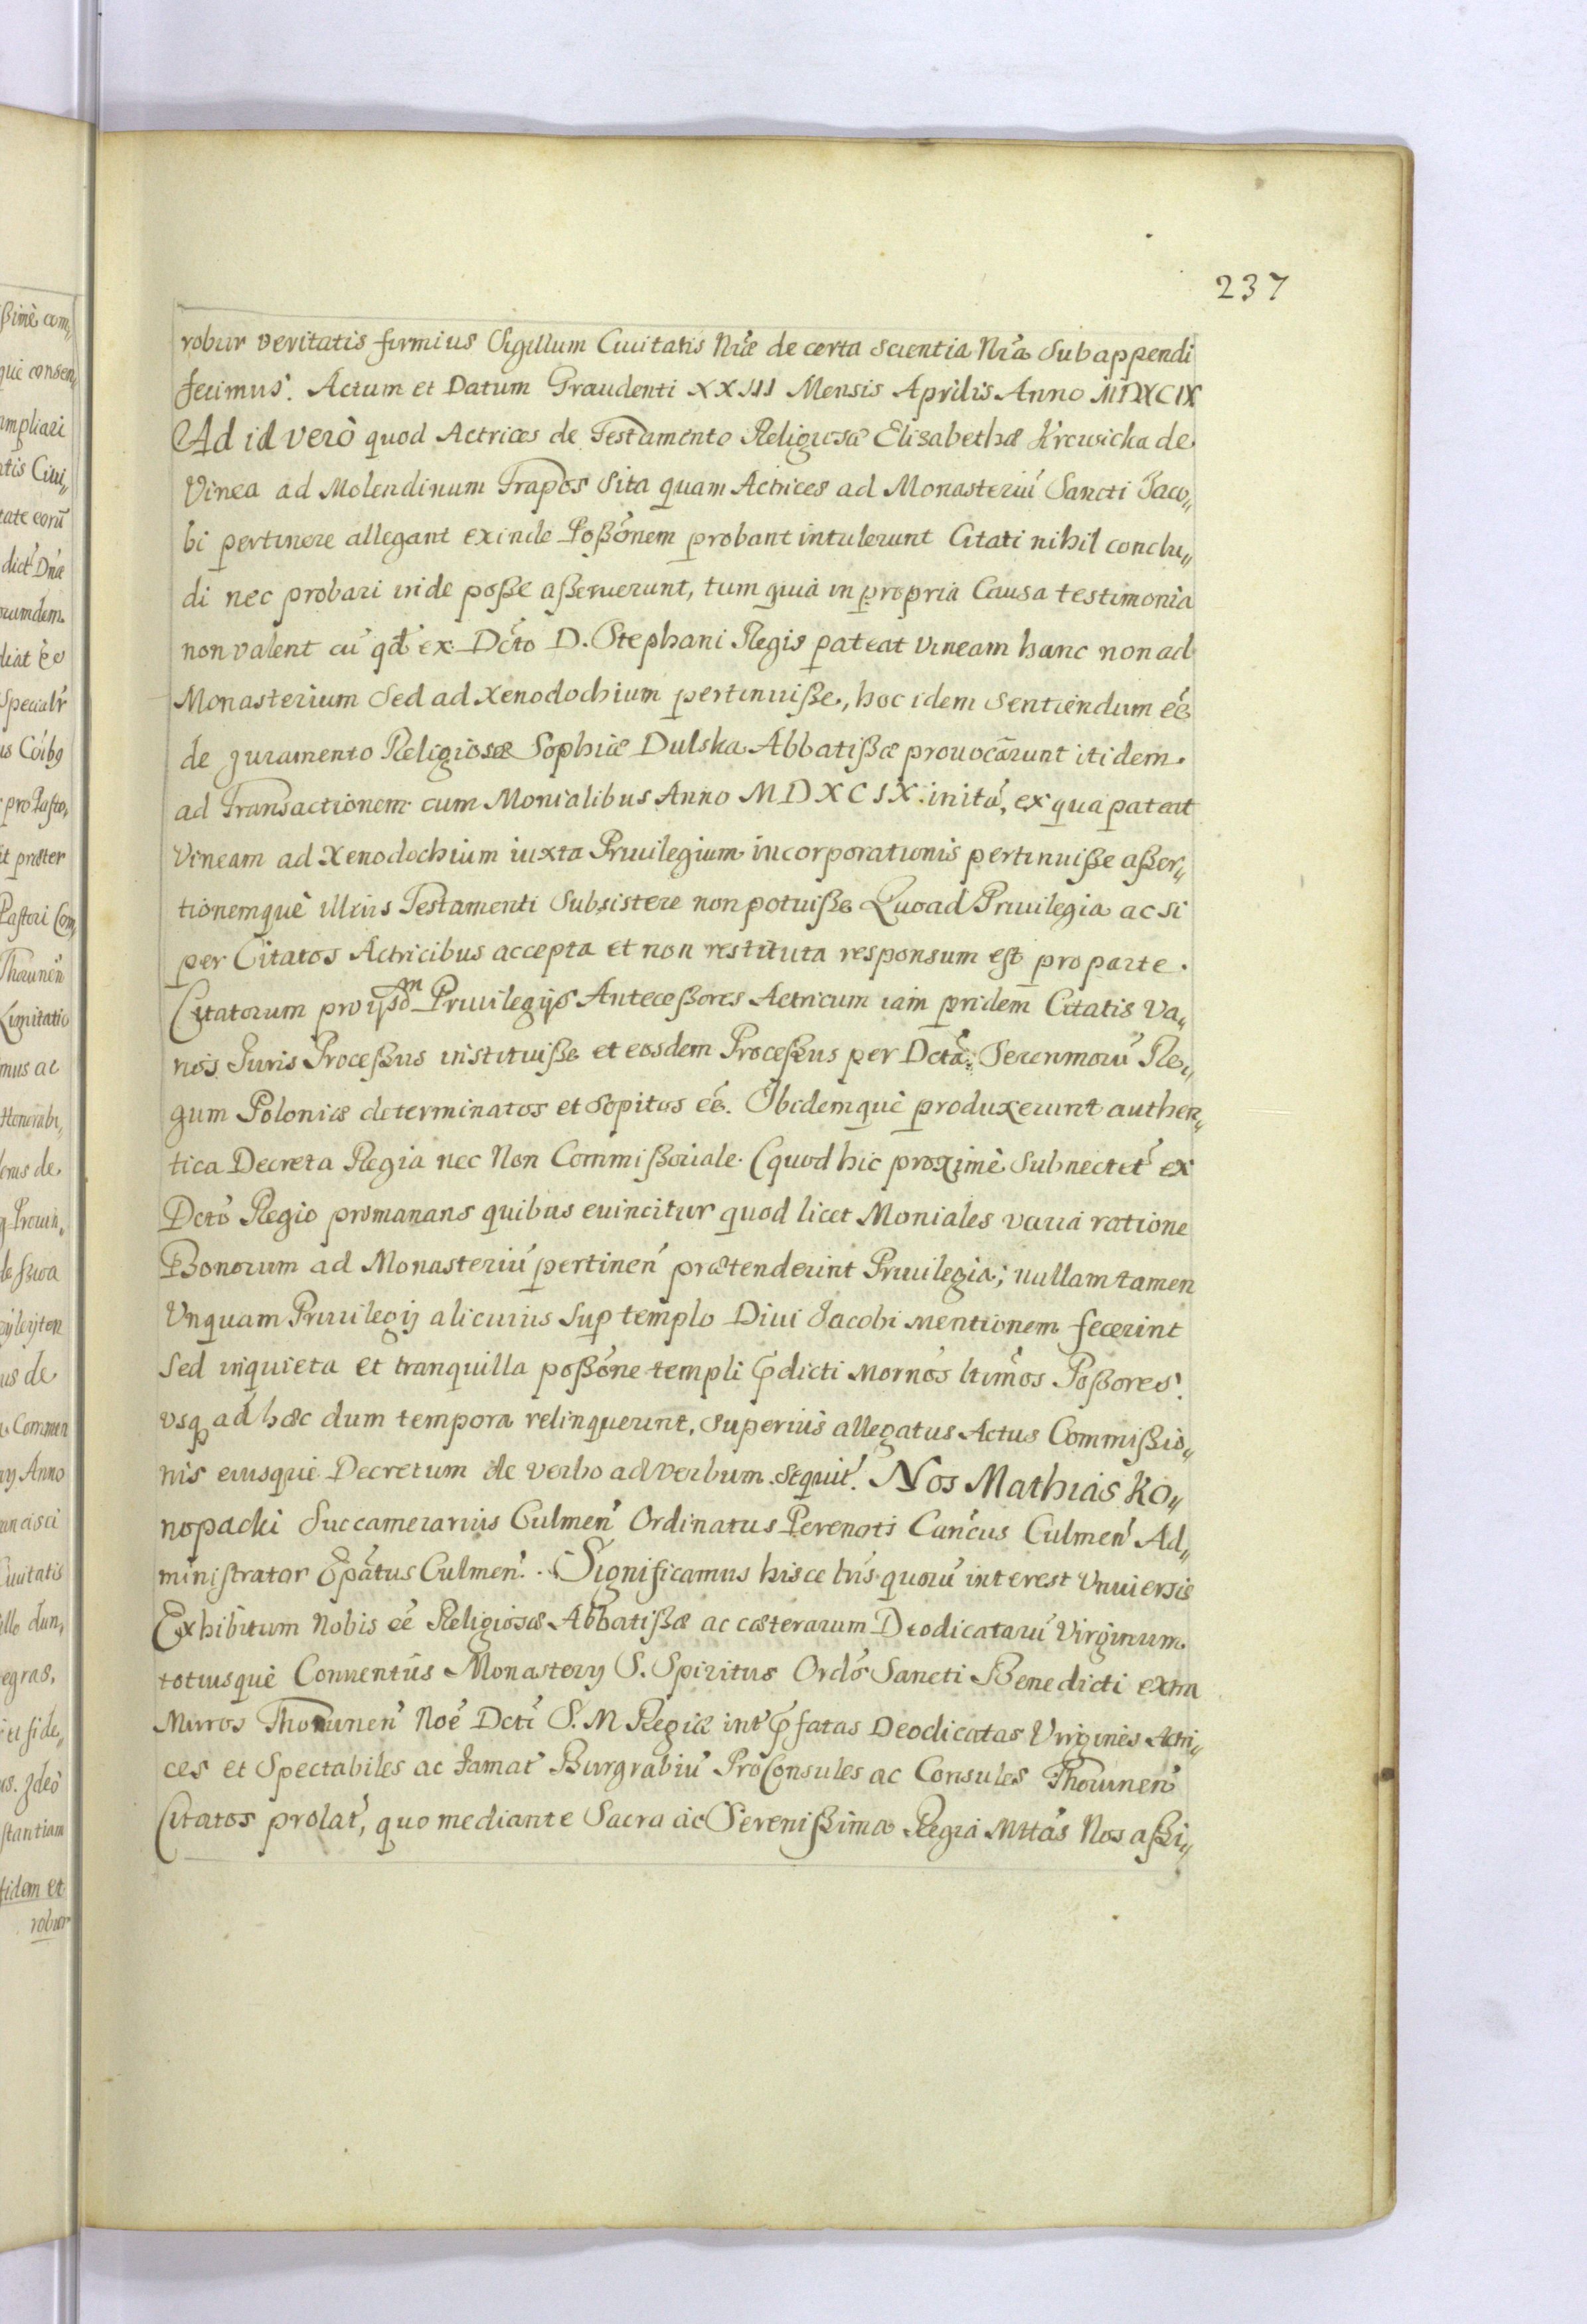 237
robur veritatis firmius Sigillum Ciuitatis Nræ de certa scientia Nra Subappendi
fecimus. Actum et Datum Graudenti XXIII Mensis Aprilis Anno MDXCIX
Ad id verò quod Actrices de Testamento Religiosæ Elisabethæ Krcwicka de
Vinea ad Molendinum Trapos Sita quam Actrices ad Monasteriu Sancti Jaco„
bi pertinere allegant exinde Poßonem probant intulerunt Citati nihil conclu„
di nec probari inde poße aßeruerunt, tum quia in propria Causa testimonia
non valent cu qd ex Dcto D. Stephani Regis pateat Vineam hanc non ad
Monasterium Sed ad Xenodochium pertinuiße, hoc idem Sentiendum ee
de Juramento Religiosæ Sophiæ Dulska Abbatißæ prouocarunt itidem.
ad Transactionem cum Monialibus Anno MDXCIX inita, ex qua pateat
Vineam ad Xenodochium iuxta Priuilegium incorporationis pertinuiße aßer„
tionemquè illius Testamenti Subsistere non potuiße Quoad Priuilegia ac si
per Citatos Actricibus accepta et non restituta responsum est pro parte.
Citatorum pro ijsdm Priuilegijs Anteceßores Actricum iam pridem Citatis Va„
rios Juris Proceßus instituiße et eosdem Proceßus per Dcta Serenmoru Re„
gum Poloniæ determinatos et Sopitos ee. Ibidemquè produxerunt authen„
tica Decreta Regia nec Non Commißoriale (quod hic proximè Subnectet ex
Dcto Regio promanans quibus euincitur quod licet Moniales varia ratione
Bonorum ad Monasteriu pertinen prætenderint Priuilegia; nullam tamen
Vnquam Priuilegij alicuius Sup templo Diui Jacobi mentionem fecerint
Sed in quieta et tranquilla poßone templi pdicti Mornos ltimos Poßores
vsq ad hæc dum tempora relinquerunt, Superius allegatus Actus Commißio„
nis eiusquè Decretum de verbo ad verbum Sequit. Nos Mathias Ko„
nopacki Succamerarius Culmen Ordinatus Perenoti Cancus Culmen Ad„
ministrator Epatus Culmen. Significamus hisce lris quoru interest Vniuersis
Exhibitum Nobis ee Religiosæ Abbatißæ ac cæterarum Deodicataru Virginum
totiusquè Conuentus Monasterij S. Spiritus Ordis Sancti Benedicti extra
Muros Thorunen Noe Dcti S. M Regiæ int pfatas Deodicatas Virgines Actri„
ces et Spectabiles ac famat Burgrabiu ProConsules ac Consules Thorunen
Citatos prolat, quo mediante Sacra ac Serenißima Regia Mttas Nos aßi„